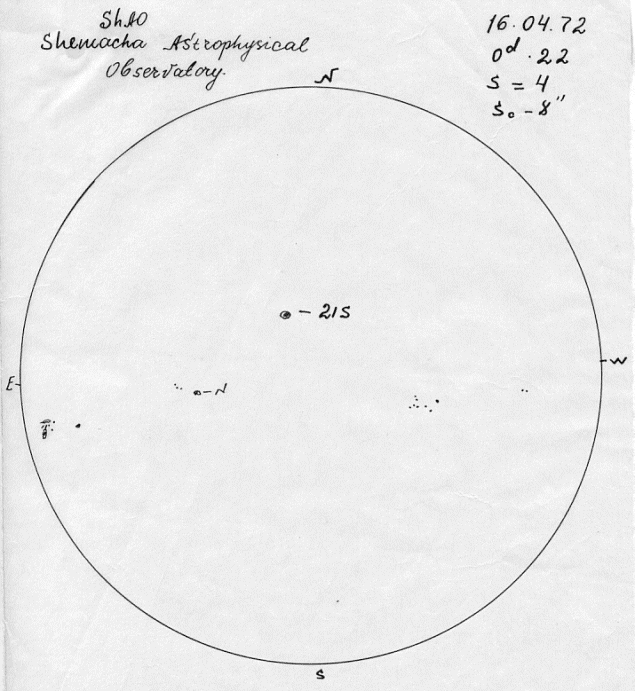 ShAO
Shemacha Astrophysical
Observatory.
16.04.72
0ᵈ.22
S = 4
S₀ - 8"
N
- 21S
W
E
- N
S